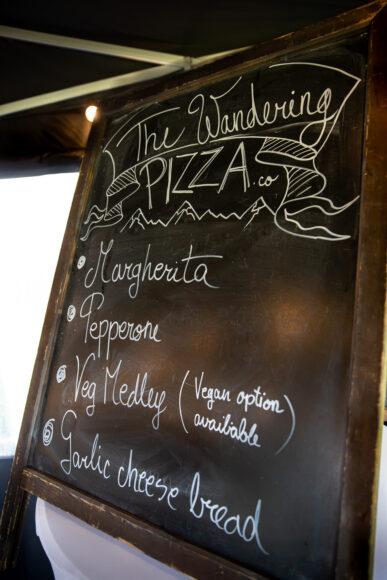 The Wandering
PIZZA.co
Margherita
Pepperone
Veg Medley (Vegan option
availiable)
Garlic cheese bread